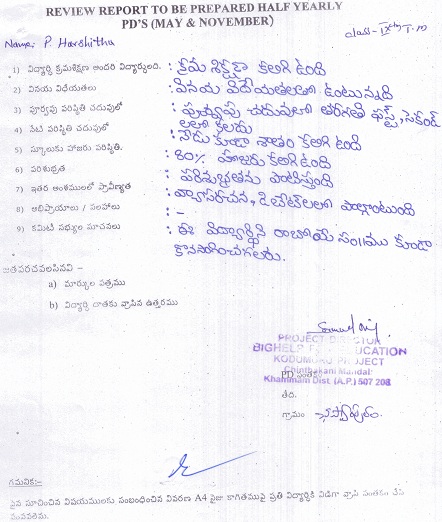 REVIEW REPORT TO BE PREPARED HALF YEARLY
PD'S (MAY & NOVEMBER)
Name: P. Harshitha
class - IXth T.M
1) విద్యార్థి క్రమశిక్షణ అందరి విద్యార్థులది. : క్రమ శిక్షణ కలిగి ఉంది
2) వినయ విధేయతలు : వినయ విధేయతలతో ఉంటున్నది
3) పూర్వపు పరిస్థితి చదువులో : పూర్వపు చదువులో తరగతి ఫస్ట్, సెకండ్
లలో కలదు
4) నేటి పరిస్థితి చదువులో : నేడు కూడా శాతం కలిగి ఉంది
5) స్కూలుకు హాజరు పరిస్థితి. : 80% హాజరు కలిగి ఉంది
6) పరిశుభ్రత : పరిశుభ్రతను పాటిస్తుంది
7) ఇతర అంశములలో ప్రావీణ్యత : వ్యాసరచన, డిబేట్లలో పాల్గొంటుంది
8) అభిప్రాయాలు / సలహాలు : -
9) కమిటీ సభ్యుల సూచనలు : ఈ విద్యార్థిని రాబోయే సం॥ము కూడా
కొనసాగించగలరు.
జతపరచవలసినవి -
a) మార్కుల పత్రము
b) విద్యార్థి దాతకు వ్రాసిన ఉత్తరము
PROJECT DIRECTOR
BIGHELP FOR EDUCATION
KODUMURU PROJECT
Chinthakani Mandal
Khammam Dist. (A.P.) 507 208
PD సంతకం
తేది.
గ్రామం
గమనిక:-
పైన సూచించిన విషయములకు సంబంధించిన వివరణ A4 సైజు కాగితముపై ప్రతి విద్యార్థికి విడిగా వ్రాసి సంతకం చేసి
పంపవలెను.